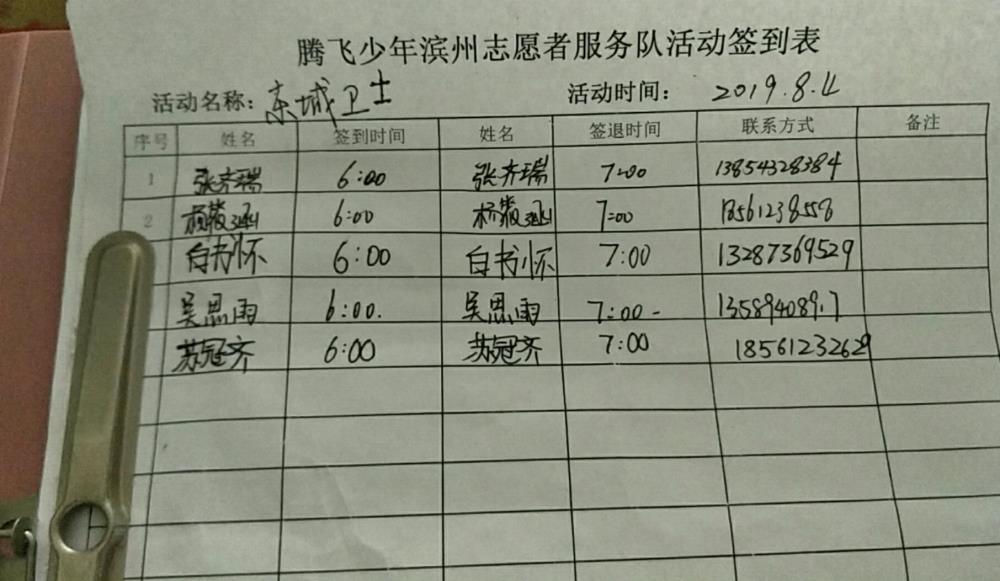 腾飞少年滨州志愿者服务队活动签到表
活动名称：东城卫士 活动时间： 2019.8.4
序号 姓名 签到时间 姓名 签退时间 联系方式 备注
1 张齐瑞 6:00 张齐瑞 7:00 13854328384
2 杨薇涵 6:00 杨薇涵 7:00 18561238558
白书怀 6:00 白书怀 7:00 13287369529
吴思雨 6:00. 吴思雨 7:00-
苏冠齐 6:00 苏冠齐 7:00 18561232629